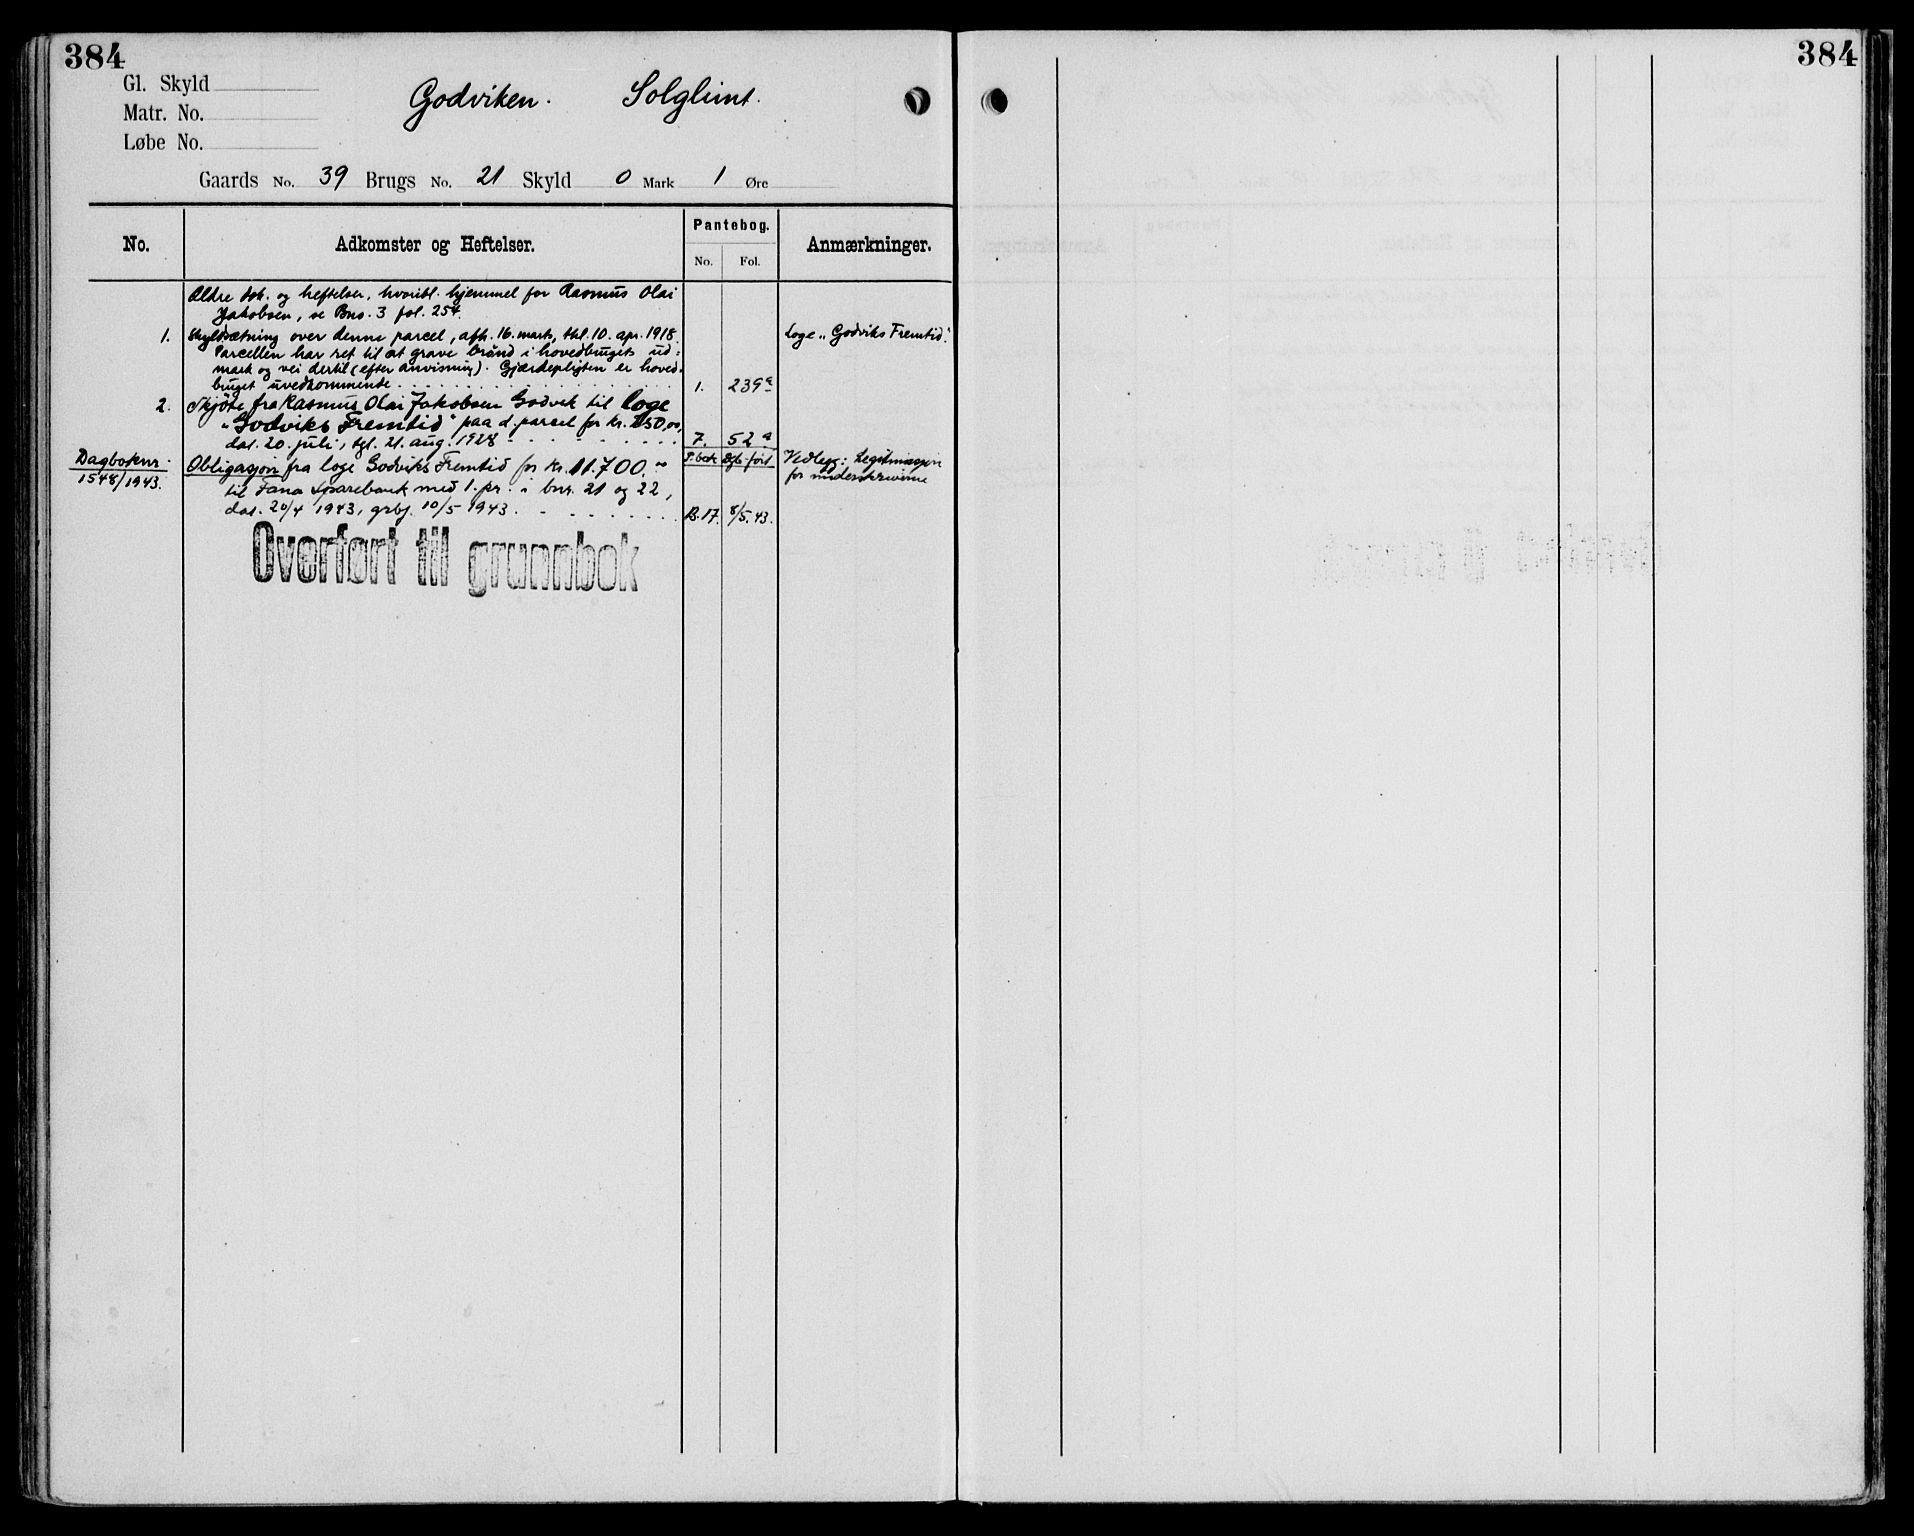 384
384
Gl. Skyld
Matr. No.
Løbe No.
Godviken. Solglimt.
Gaards No. 39 Brugs No. 21 Skyld 0 Mark 1 Øre
No.
Adkomster og Heftelser.
Pantebog.
No. Fol.
Anmærkninger.
Ældre dok. og heftelser, hvoribl. hjemmel for Rasmus Olai
Jakobsen, se Bno. 3 fol. 254.
1. Skyldsætning over denne parcel, afh. 16. marts, thl. 10. apr. 1918.
Parcellen har ret til at grave brønd i hovedbrugets ud=
mark og vei dertil (efter anvisning). Gjærdepligten er hoved=
bruget uvedkommende 1. 239a
Loge „Godviks Fremtid".
2. Skjøte fra Rasmus Olai Jakobsen Godvik til loge
„Godviks Fremtid" paa d. parcel for kr. 150,00,
dat. 20. juli, tgl. 21. aug. 1928 7. 52a
Dagboknr.
1548/1943.
Obligasjon fra loge Godviks Fremtid for kr. 11.700.-
til Fana Sparebank med 1. pr. i bnr. 21 og 22,
dat. 20/4 1943, grbj. 10/5 1943.
P.bok Dgb. ført
B.17. 8/5.43.
Vedlegg: Legitimasjon
for underskriverne
Overført til grunnbok